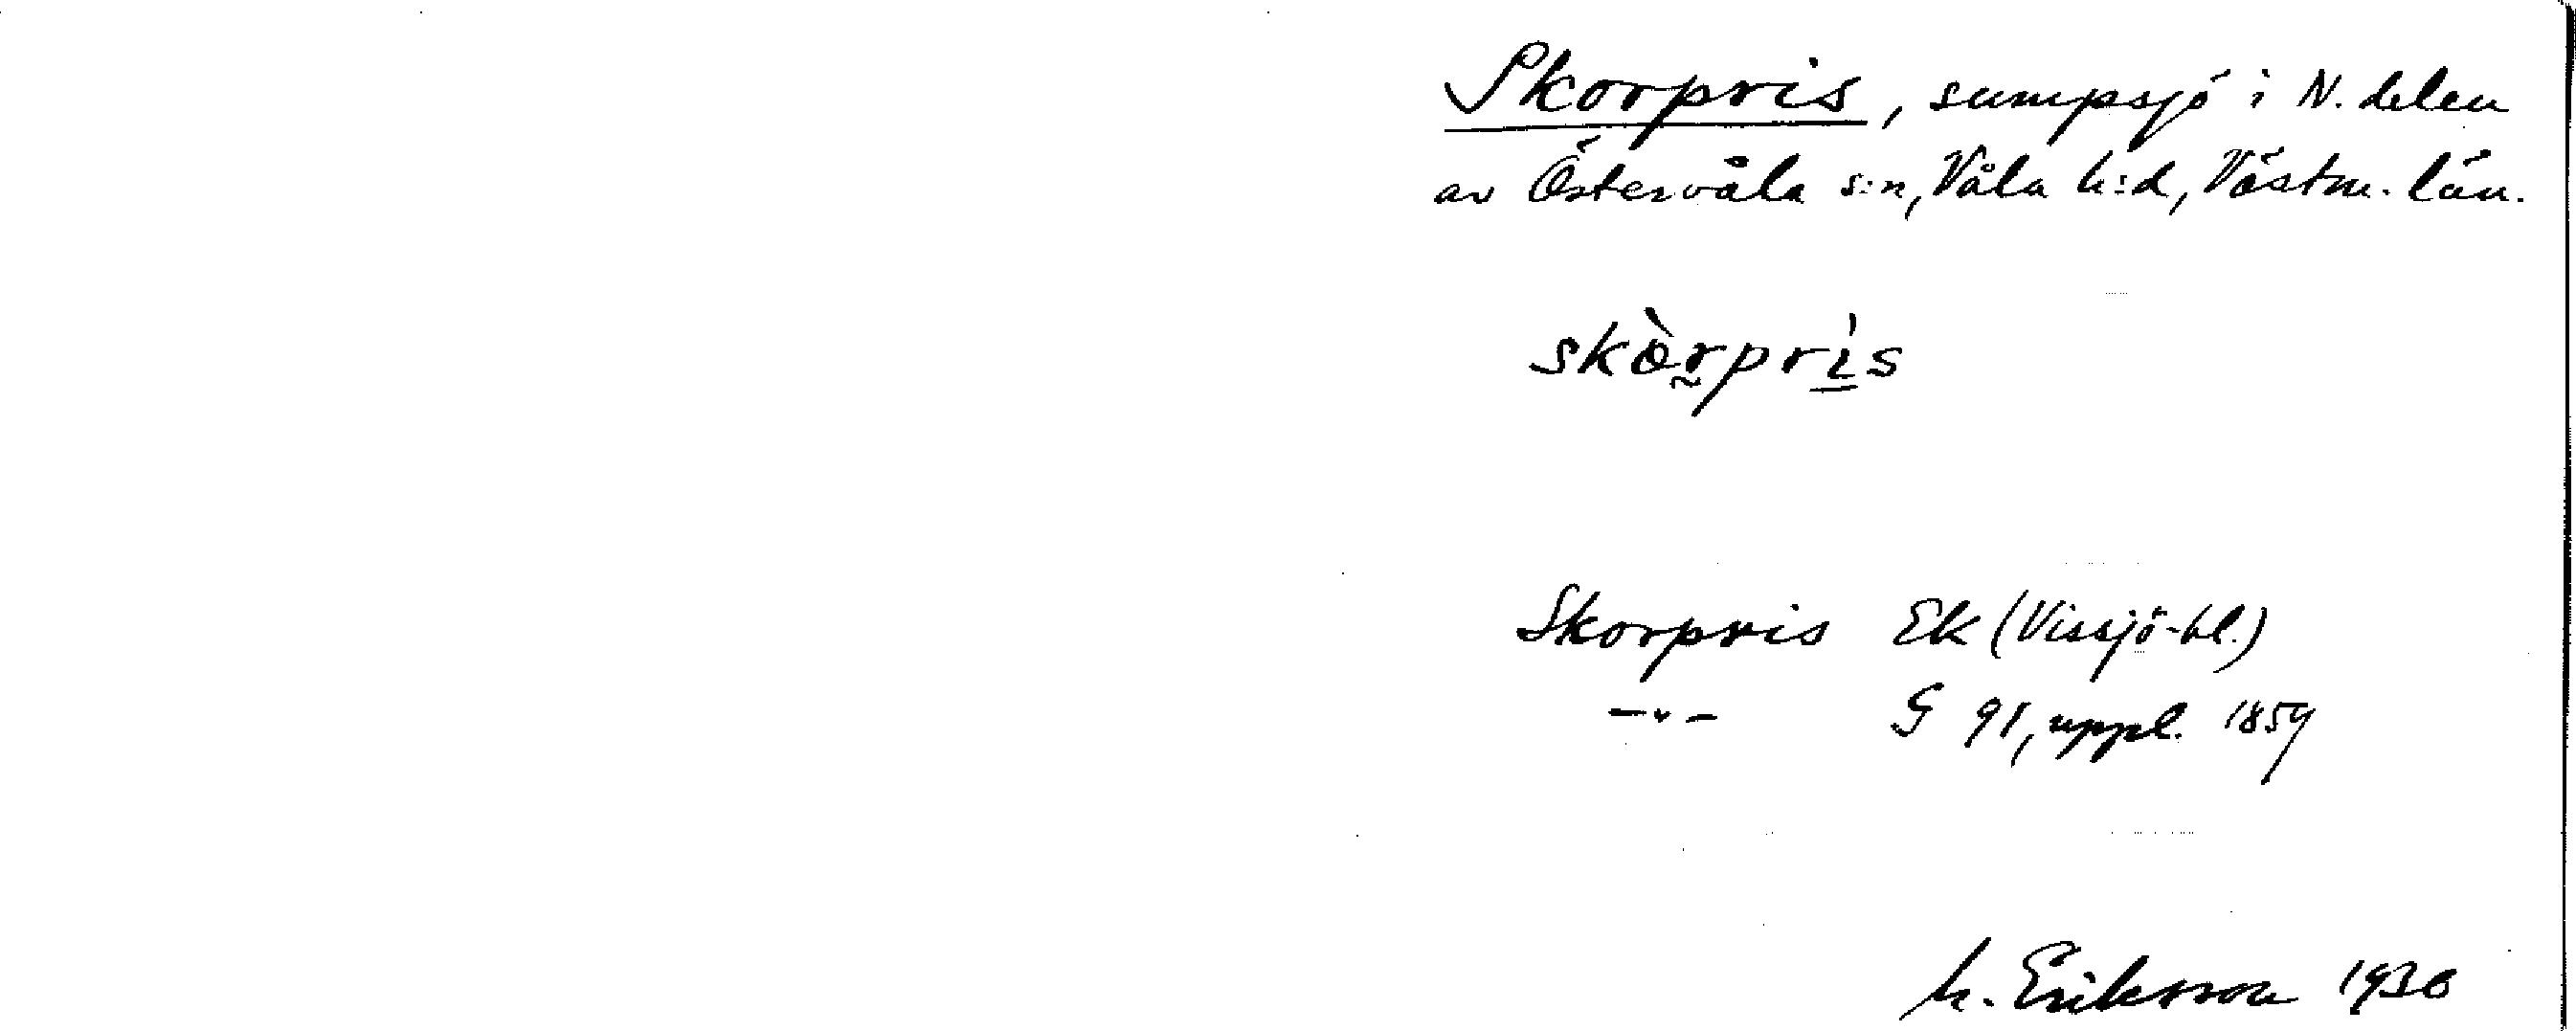 Skorpris, sumpsjö i N. delen
av Östervåla s:n, Våla h:d, Västm. län.
skòrprìs
Skorpris Ek (Vissjö-bl.)
-"- G 91, uppl. 1859
M. Eriksson 1936